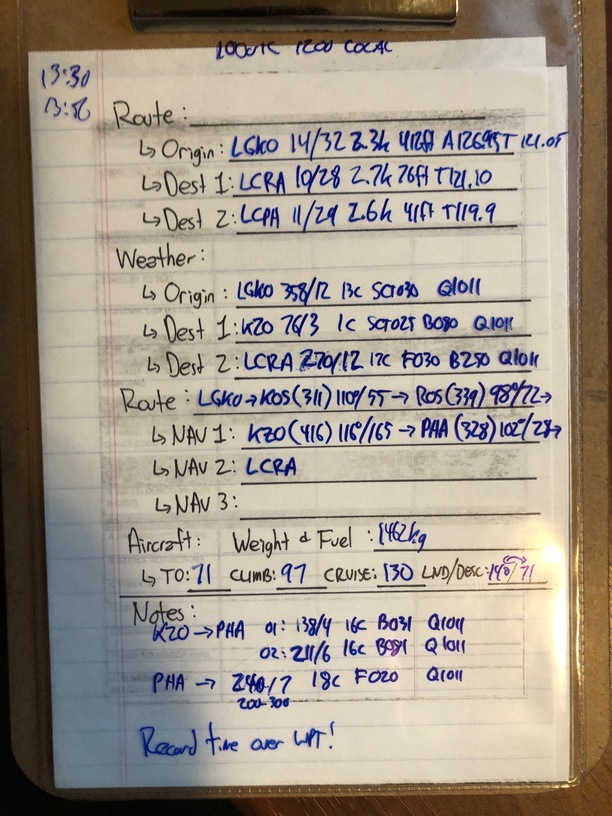 100UTC 1200 LOCAL
13:30
13:56
Route:
↳ Origin: LGKO 14/32 2.3k 412ft A126.95T 121.05
↳ Dest 1: LCRA 10/28 2.7k 76ft T121.10
↳ Dest 2: LCPH 11/29 2.6k 41ft T119.9
Weather:
↳ Origin: LGKO 358/12 13c SCT030 Q1011
↳ Dest 1: KZO 76/3 1c SCT025 B080 Q1011
↳ Dest 2: LCRA 270/12 17c F030 B250 Q1011
Route: LGKO → KOS(311) 110°/55 → ROS(339) 98°/72 →
↳ NAV 1: KZO(416) 116°/165 → PHA (328) 102°/28 →
↳ NAV 2: LCRA
↳ NAV 3:
Aircraft: Weight & Fuel: 1462kg
↳ TO: 71 CLIMB: 97 CRUISE: 130 LND/DESC: 148/71
Notes:
KZO → PHA 01: 138/4 16c B031 Q1011
02: 211/6 16c B081 Q1011
PHA → 240/7 18c F020 Q1011
200-300
Record time over WPT!